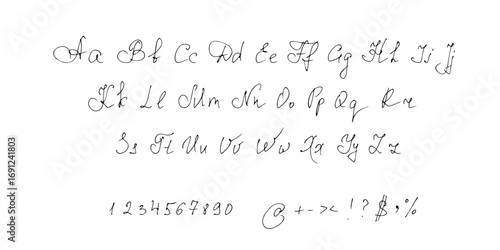 Aa Bb Cc Dd Ee Ff Gg Hh Ii Jj
Kk Ll Mm Nn Oo Pp Qq Rr
Ss Tt Uu Vv Ww Xx Yy Zz
1 2 3 4 5 6 7 8 9 0 @ + - > < ! ? $ ; %
Adobe Stock | #1691241803